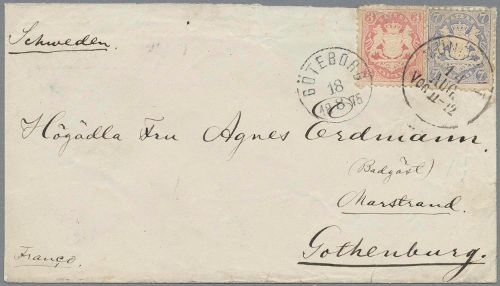 Schweden.
3 3
7 7
GÖTEBORG
18
8
75
AUG.
VOR. 11-12
Högädla Fru Agnes Erdmann.
(Badgäst)
Marstrand.
Gothenburg.
Franco.